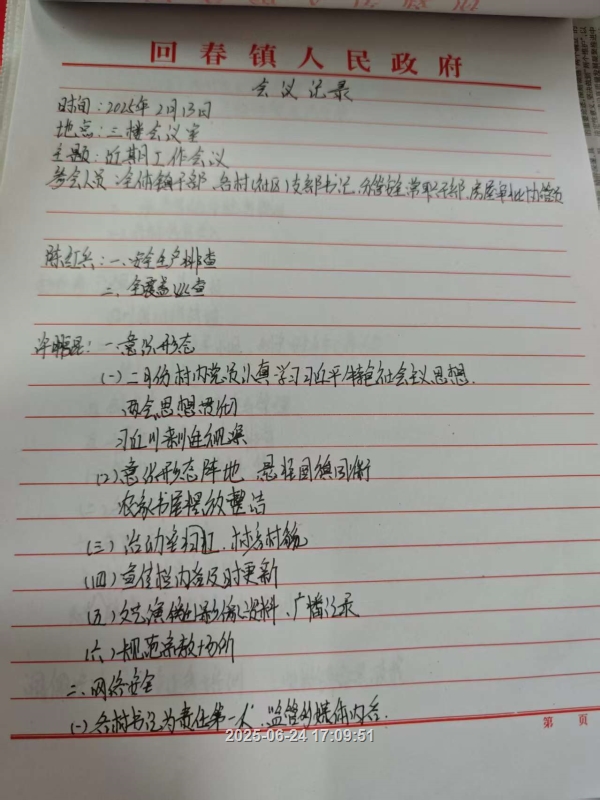 回春镇人民政府
会议记录
时间：2025年2月13日
地点：三楼会议室
主题：近期工作会议
参会人员：全体镇干部、各村(社区)支部书记、分管安全常职干部、房屋
陈红兵：一、安全生产排查
二、全覆盖
一、意识形态
(一)二月份村内党员认真学习习近平特色社会主义思想.
两会思想贯彻
习近
(2)意识形态阵地 悬挂国旗国徽
农家书屋摆放整洁
(三)活动室 村容村貌
(四)宣传栏内容及时更新
(五)文艺演 影像资料、广播记录
(六)规范宗教场所
二、网络安全
(一)各村书记为责任第一人、监管外媒体内容.
第 页
2025-06-24 17:09:51